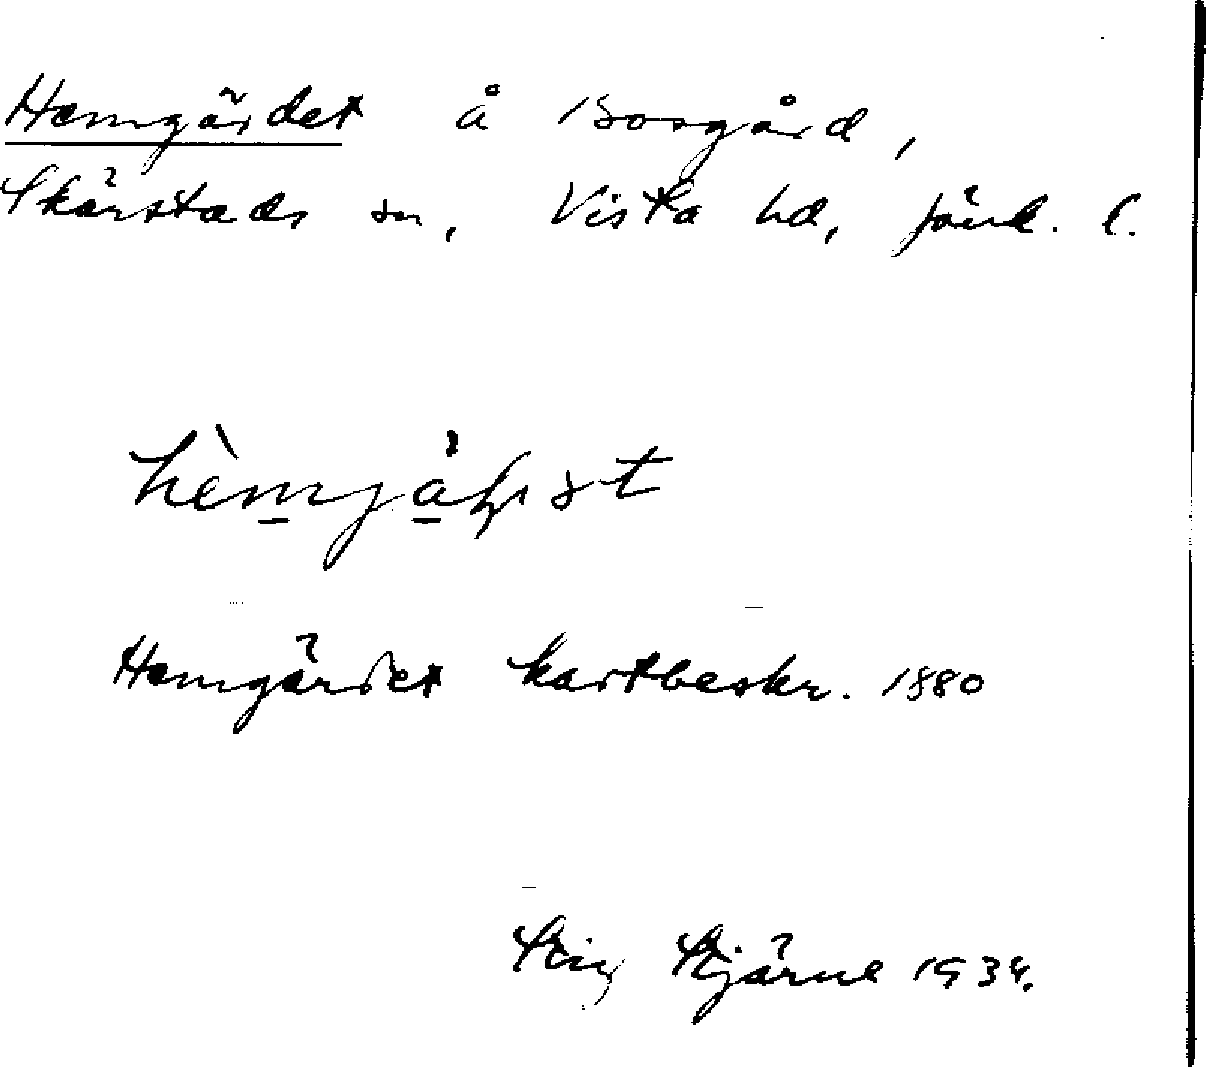 Hemgärdet å Bosgård,
Skärstads sn, Vista hd, Jönk. l.
Hemgärdet kartbeskr. 1880
Stig Stjärne 1934.